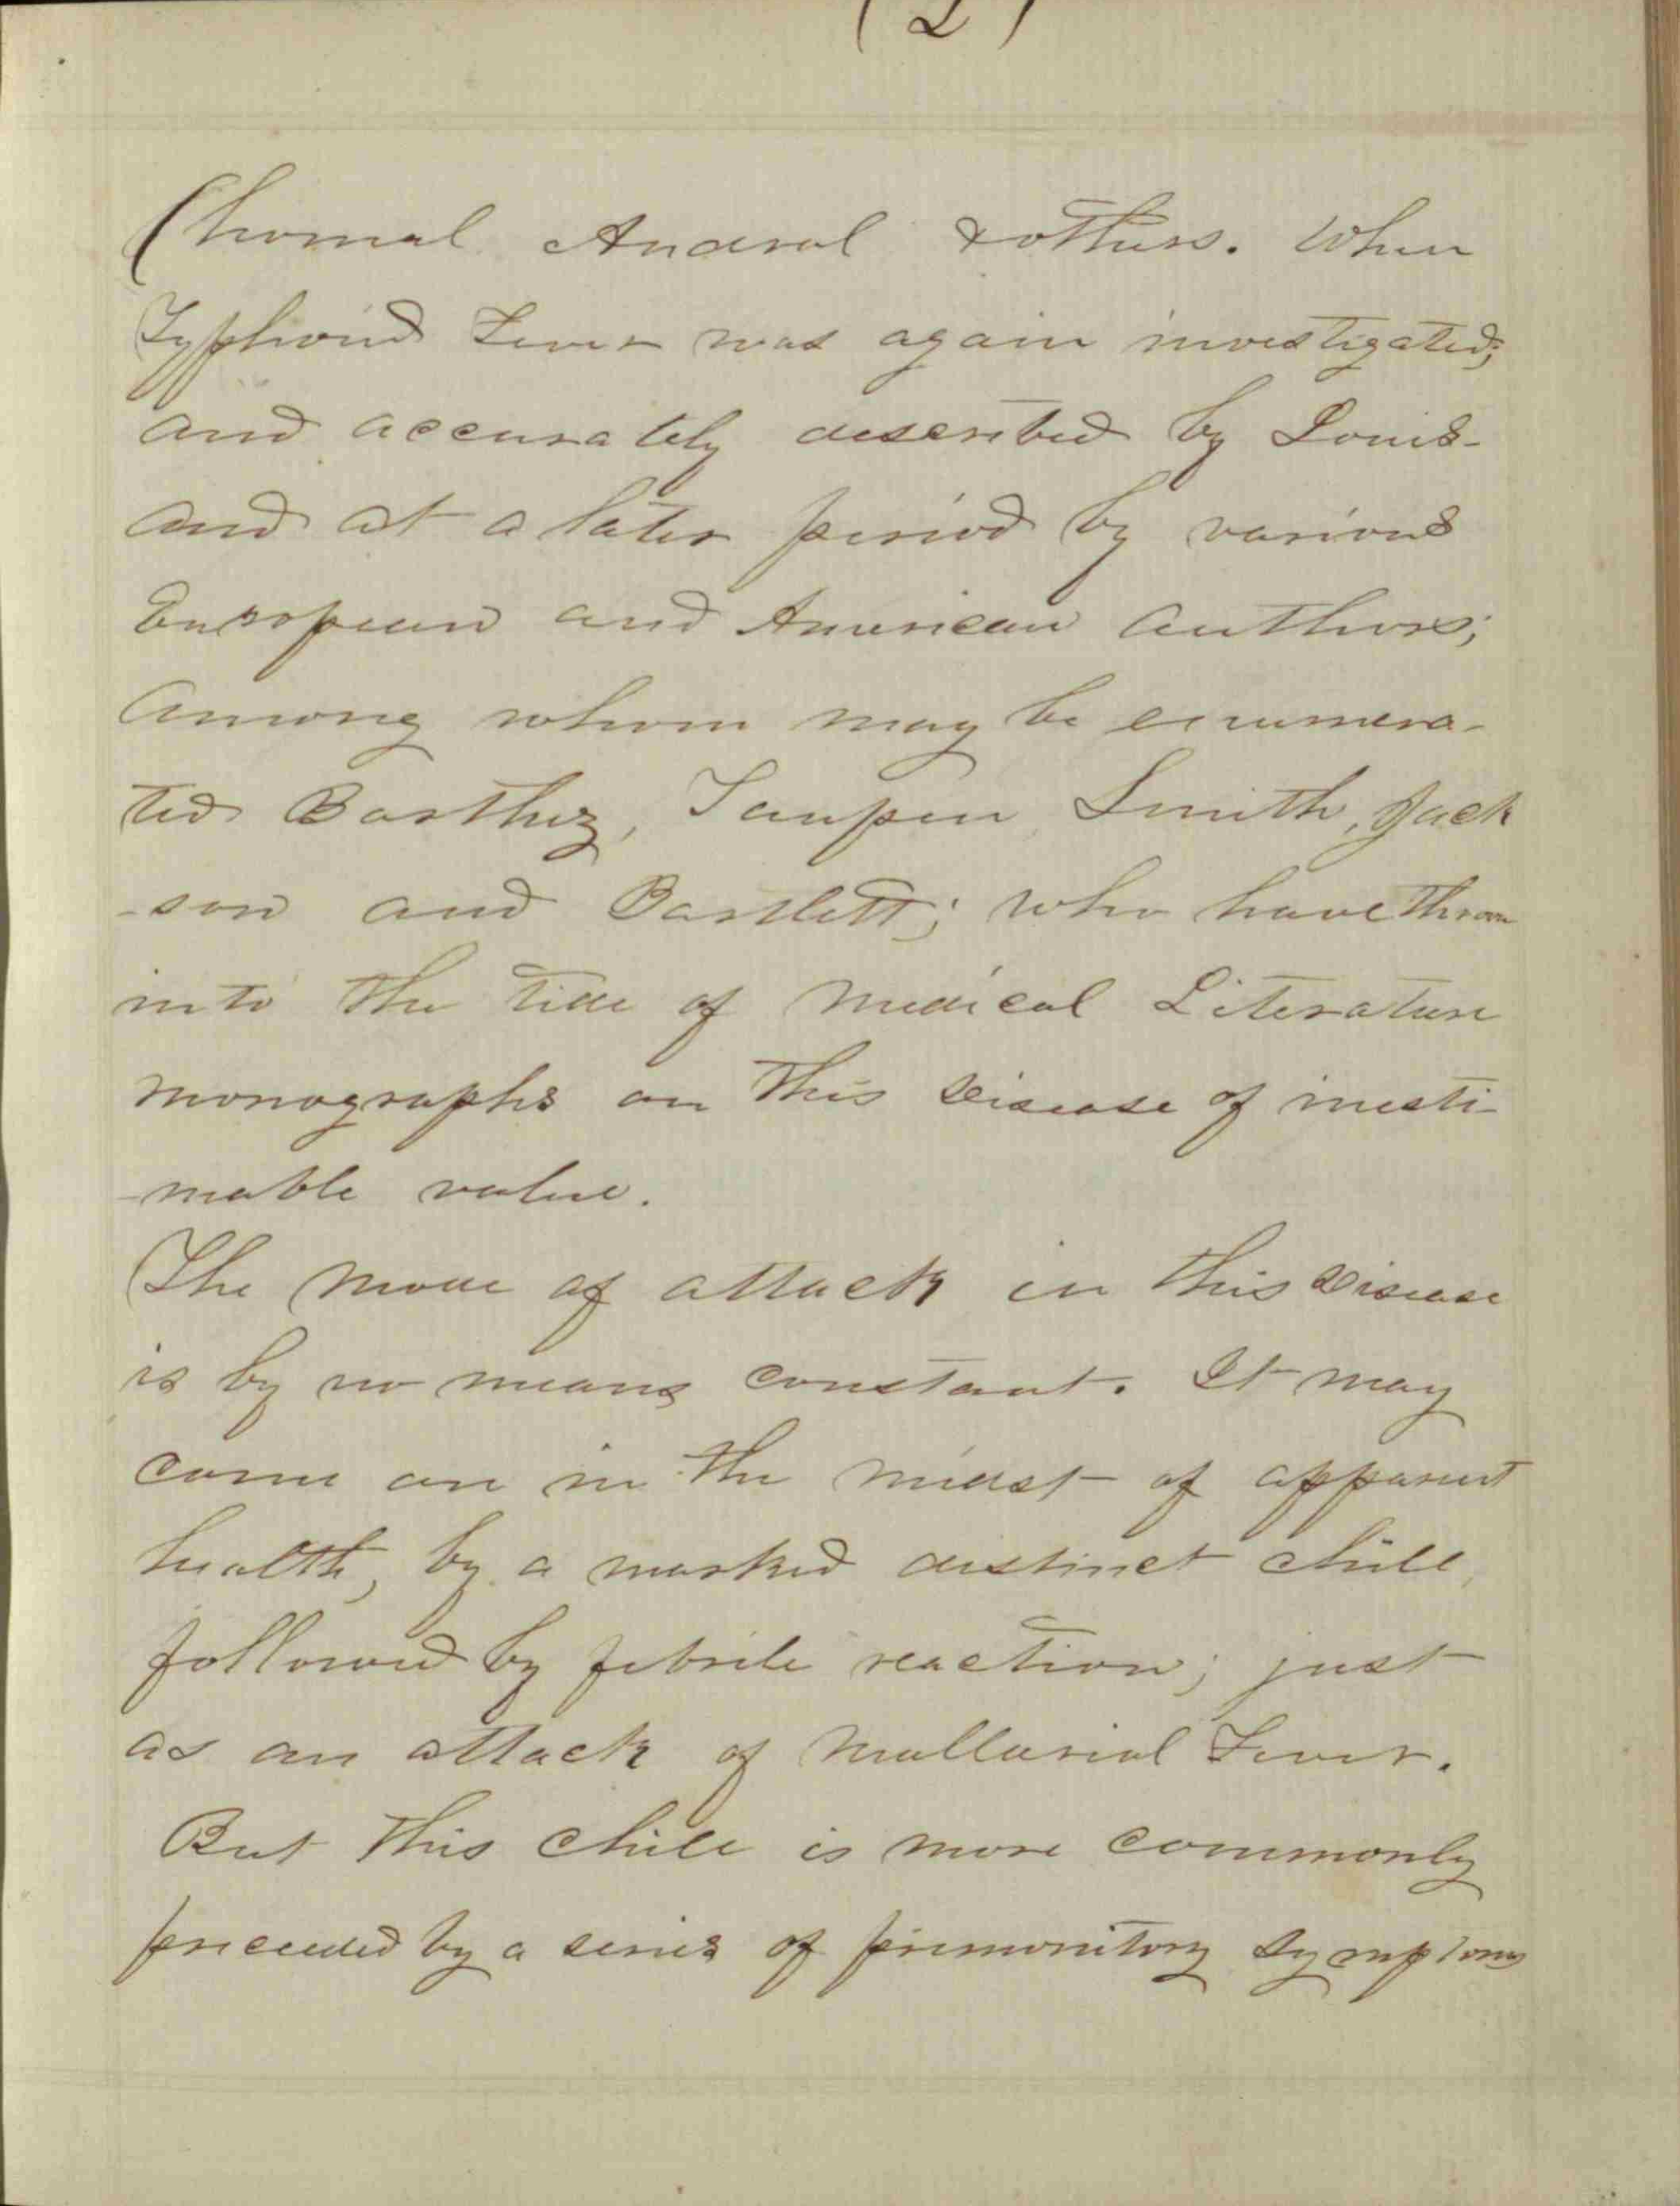 (2)
Chomel Andral & others. When
Typhoid Fever was again investigated;
and accurately described by Louis-
and at a later period by various
European and American authors;
among whom may be enumera-
ted Barthez, Taupin, Smith, Jack
-son and Bartlett; who have thrown
into the tide of medical Literature
monographs on this Disease of inesti-
-mable value.
The mode of attack in this Disease
is by no means constant. It may
come on in the midst of apparent
health, by a marked distinct chill,
followed by febrile reaction; just
as an attack of mallarial Fever.
But this chill is more commonly
preceeded by a series of premonitory symptoms